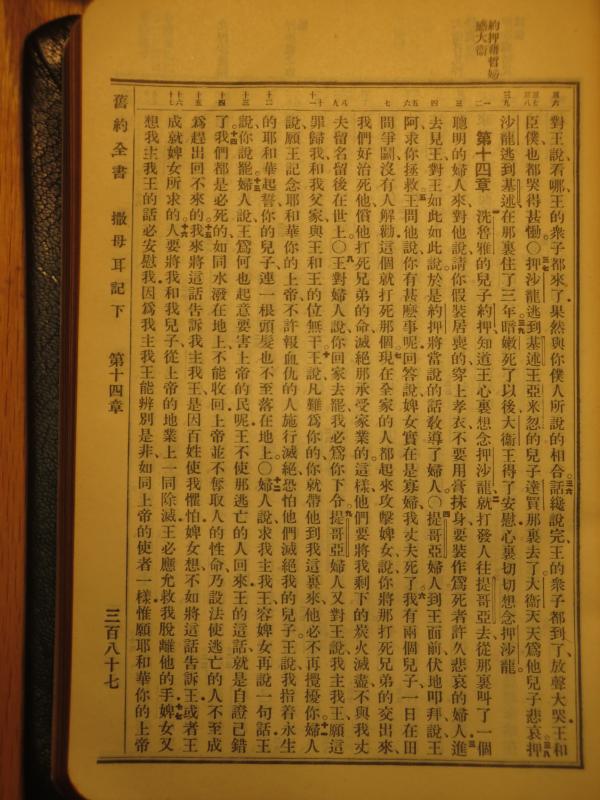 約押藉哲婦
感大衛
對王說看哪王的衆子都來了果然與你僕人所說的相合話纔說完王的衆子都到了放聲大哭王和
臣僕也都哭得甚慟○押沙龍逃到基述王亞米忽的兒子達買那裏去了大衛天天爲他兒子悲哀押
沙龍逃到基述在那裏住了三年暗嫩死了以後大衛王得了安慰心裏切切想念押沙龍
第十四章 洗魯雅的兒子約押知道王心裏想念押沙龍就打發人往提哥亞去從那裏叫了一個
聰明的婦人來對他說請你假裝居喪的穿上孝衣不要用膏抹身要裝作爲死者許久悲哀的婦人進
去見王對王如此如此說於是約押將當說的話敎導了婦人○提哥亞婦人到王面前伏地叩拜說王
阿求你拯救王問他說你有甚麽事呢回答說婢女實在是寡婦我丈夫死了我有兩個兒子一日在田
間爭鬬沒有人解勸這個就打死那個現在全家的人都起來攻擊婢女說你將那打死兄弟的交出來
我們好治死他償他打死兄弟的命滅絕那承受家業的這樣他們要將我剩下的炭火滅盡不與我丈
夫留名留後在世上○王對婦人說你回家去罷我必爲你下令提哥亞婦人又對王說我主我王願這
罪歸我和我父家與王和王的位無干王說凡難爲你的你就帶他到我這裏來他必不再攪擾你婦人
說願王記念耶和華你的上帝不許報血仇的人施行滅絕恐怕他們滅絕我的兒子王說我指着永生
的耶和華起誓你的兒子連一根頭髮也不至落在地上○婦人說求我主我王容婢女再說一句話王
說你說罷婦人說王爲何也起意要害上帝的民呢王不使那逃亡的人回來王的這話就是自證己錯
了我們都是必死的如同水潑在地上不能收回上帝並不奪取人的性命乃設法使逃亡的人不至成
爲趕出回不來的我來將這話告訴我主我王是因百姓使我懼怕婢女想不如將這話告訴王或者王
成就婢女所求的人要將我和我兒子從上帝的地業上一同除滅王必應允救我脫離他的手婢女又
想我主我王的話必安慰我因爲我主我王能辨別是非如同上帝的使者一樣惟願耶和華你的上帝
舊約全書 撒母耳記下 第十四章 三百八十七